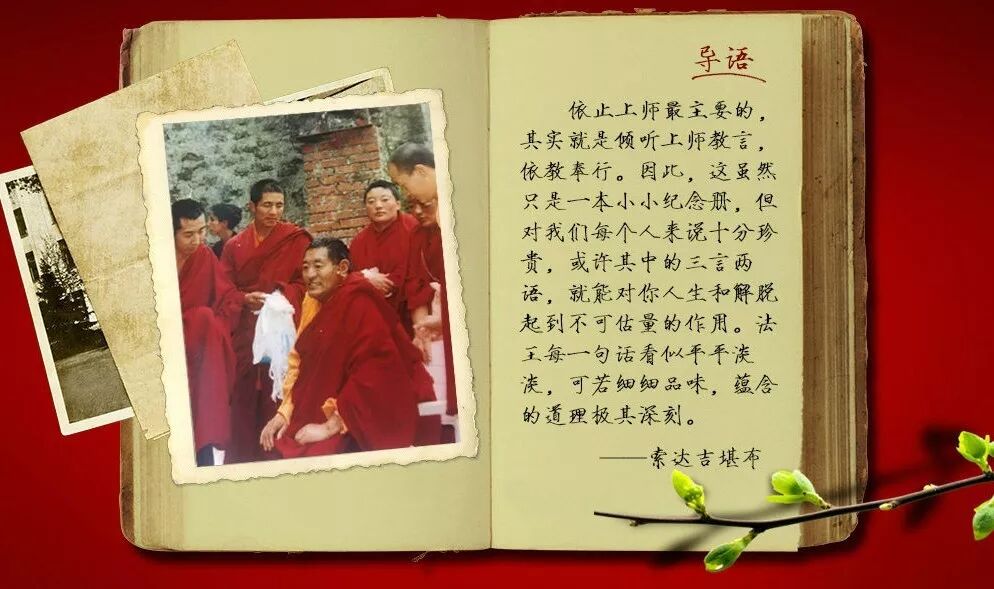 导语
依止上师最主要的，
其实就是倾听上师教言，
依教奉行。因此，这虽然
只是一本小小纪念册，但
对我们每个人来说十分珍
贵，或许其中的三言两
语，就能对你人生和解脱
起到不可估量的作用。法
王每一句话看似平平淡
淡，可若细细品味，蕴含
的道理极其深刻。
——索达吉堪布